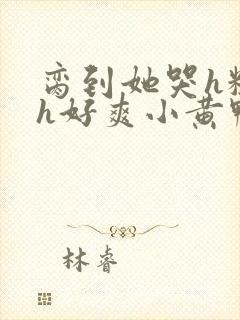 脔到她哭h粗
h好爽小黄鸭
林睿